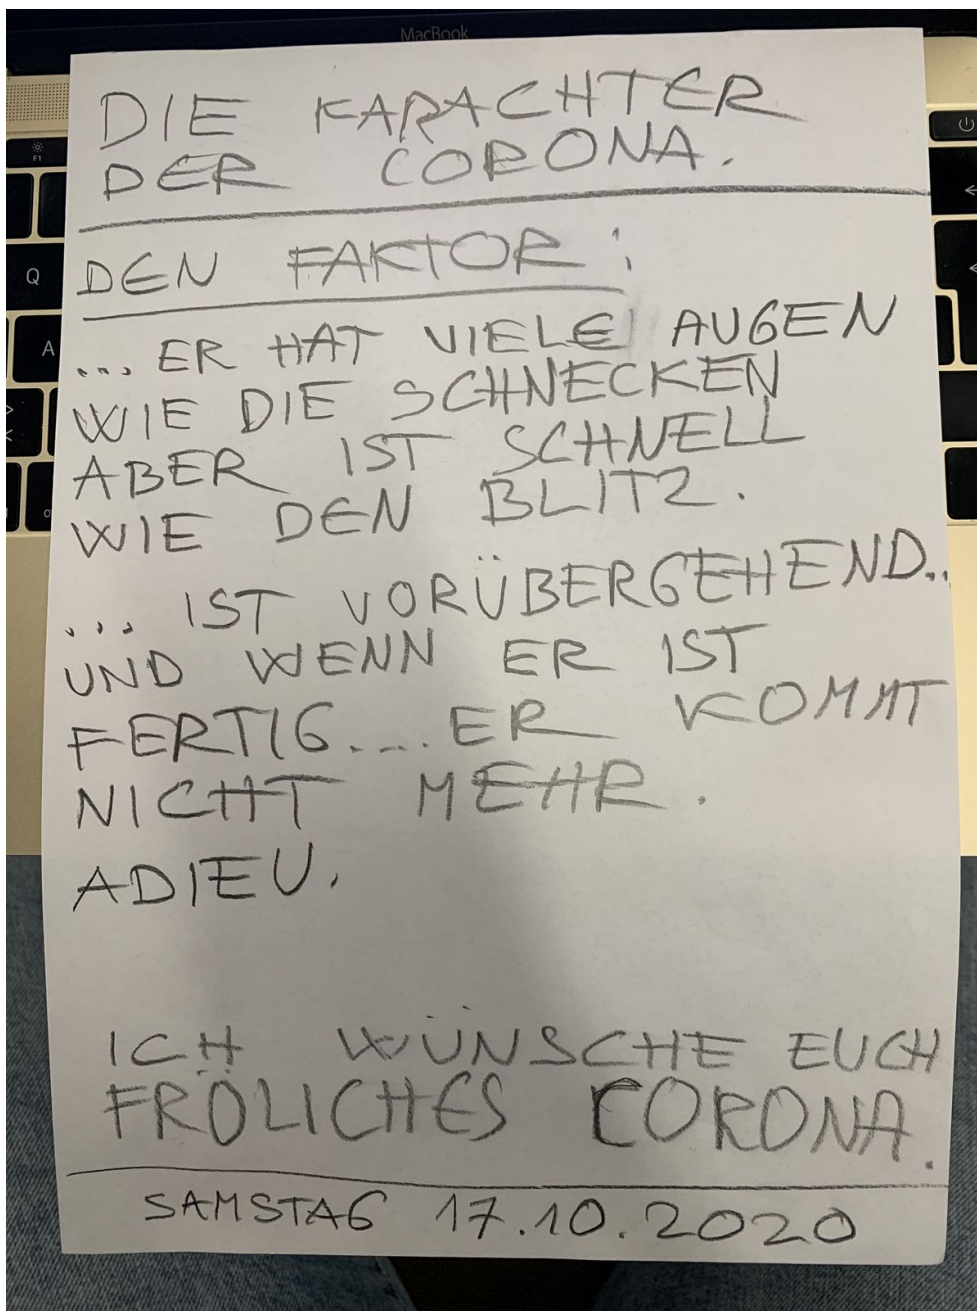 MacBook
DIE KARACHTER
DER CORONA.
DEN FAKTOR :
... ER HAT VIELE AUGEN
WIE DIE SCHNECKEN
ABER IST SCHNELL
WIE DEN BLITZ.
... IST VORÜBERGEHEND..
UND WENN ER IST
FERTIG.... ER KOMMT
NICHT MEHR.
ADIEU.
ICH WÜNSCHE EUCH
FRÖLICHES CORONA.
SAMSTAG 17.10.2020
F1
Q
A